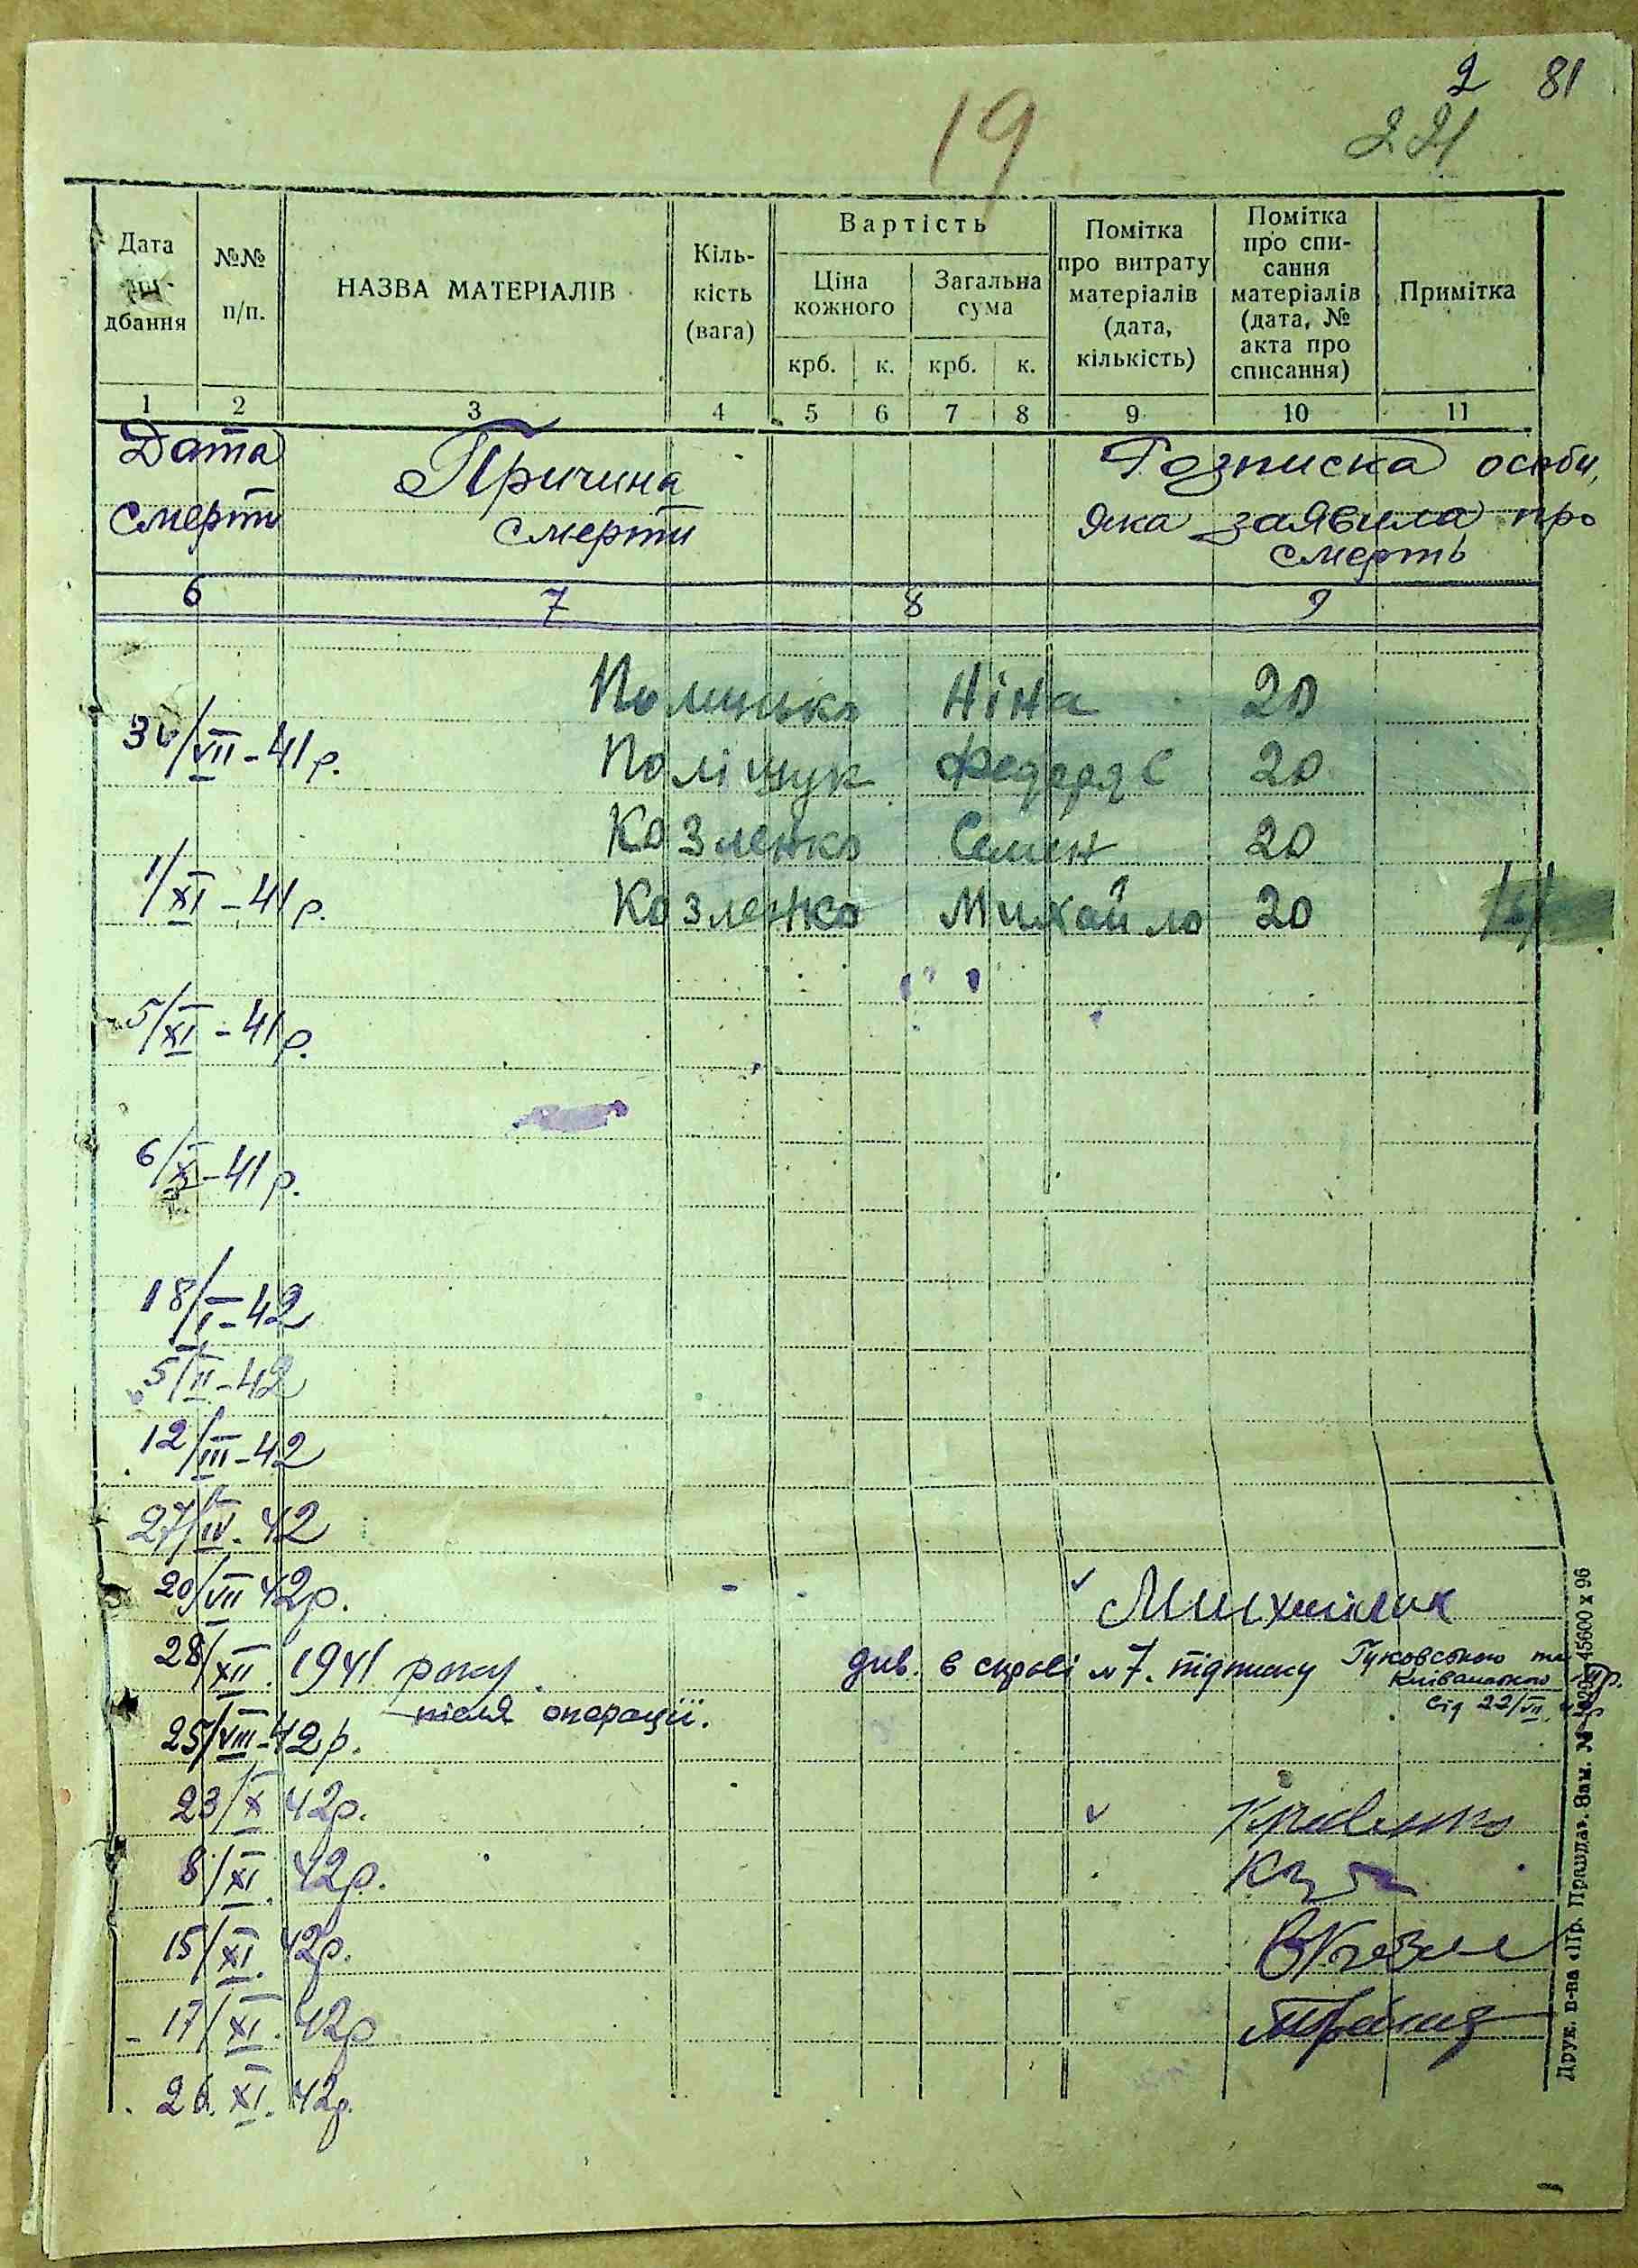 2 81
19
221
Дата дбання
№№ п/п.
НАЗВА МАТЕРІАЛІВ
Кіль-
кість
(вага)
Вартість
Ціна
кожного
Загальна
сума
крб. к. крб. к.
Помітка
про витрату
матеріалів
(дата,
кількість)
Помітка
про спи-
сання
матеріалів
(дата, №
акта про
списання)
Примітка
1 2 3 4 5 6 7 8 9 10 11
Дата
смерти
Причина
смерти
Розписка особи,
яка заявила про
смерть
6 7 8 9
Ніна 20
/VII - 41 р.
Поліщук 20
Козленко Семен 20
1/XI - 41 р.
Козленко Михайло 20
5/XI - 41 р.
6/XI - 41 р.
18/I - 42
5/II - 42
12/III - 42
27/IV - 42
20/VII 42р.
28/XII. 1941 року
див. в справі № 7. підписку
від 22/VII
після операції.
25/VIII - 42 р.
23/X 42р.
Кравченко
8/XI. 42р.
15/XI. 42р.
17/XI. 42р
26. XI. 42р.
Друк. в-ва «Пр. Правда». Зам. № 45600 х 96